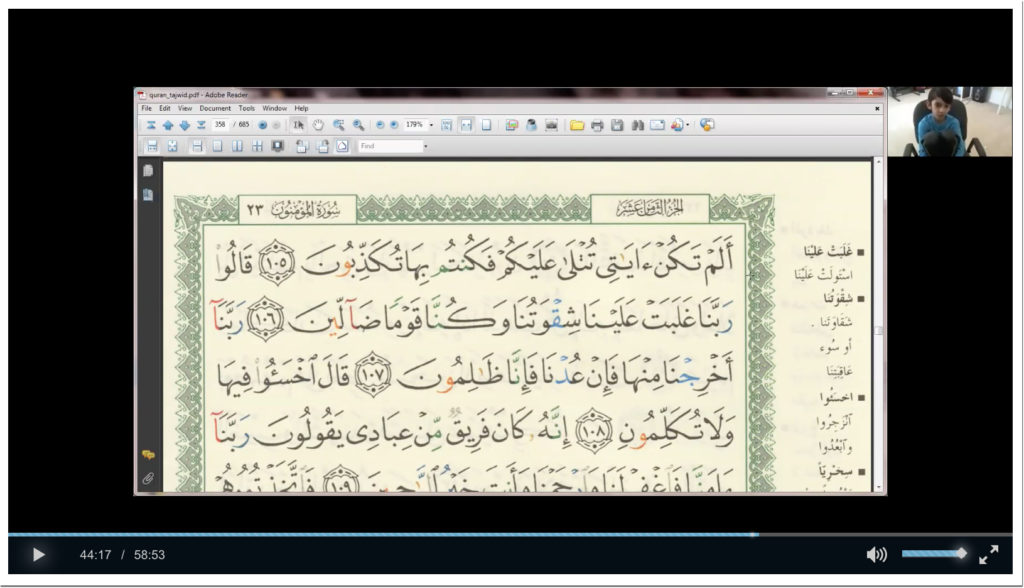 quran_tajwid.pdf - Adobe Reader
File Edit View Document Tools Window Help
358 / 685 179%
Find
سُورَةُ المُؤْمِنُون ٢٣
الجُزْءُ الثَّامِنَ عَشَر
أَلَمْ تَكُنْ ءَايَـٰتِى تُتْلَىٰ عَلَيْكُمْ فَكُنتُم بِهَا تُكَذِّبُونَ ١٠٥ قَالُوا۟
رَبَّنَا غَلَبَتْ عَلَيْنَا شِقْوَتُنَا وَكُنَّا قَوْمًا ضَآلِّينَ ١٠٦ رَبَّنَآ
أَخْرِجْنَا مِنْهَا فَإِنْ عُدْنَا فَإِنَّا ظَـٰلِمُونَ ١٠٧ قَالَ ٱخْسَـُٔوا۟ فِيهَا
وَلَا تُكَلِّمُونِ ١٠٨ إِنَّهُۥ كَانَ فَرِيقٌ مِّنْ عِبَادِى يَقُولُونَ رَبَّنَآ
ءَامَنَّا فَٱغْفِرْ لَنَا وَٱرْحَمْنَا وَأَنتَ خَيْرُ ٱلرَّٰحِمِينَ ١٠٩ فَٱتَّخَذْتُمُوهُمْ
■ غَلَبَتْ عَلَيْنَا
اسْتَوْلَتْ عَلَيْنَا
■ شِقْوَتُنَا
شَقَاوَتُنَا .
أو سُوء
عَاقِبَتِنَا
■ اخْسَئُوا
انْزَجِرُوا
وَابْعُدُوا
■ سِخْرِيّاً
44:17 / 58:53